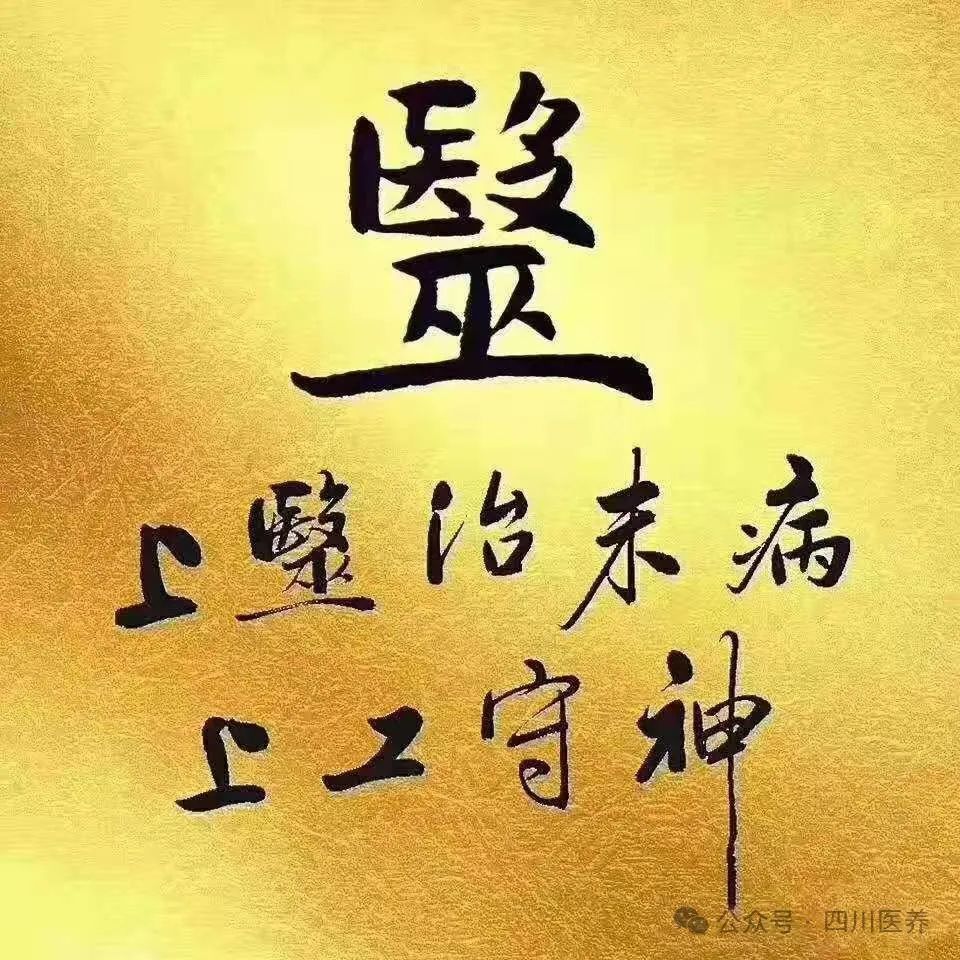 毉
上毉治未病
上工守神
公众号·四川医养